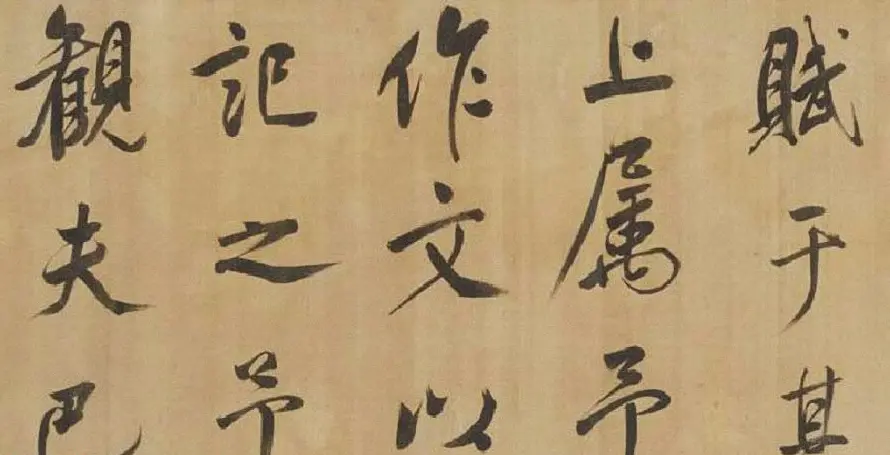 賦于其
上属予
作文以
記之予
観夫巴